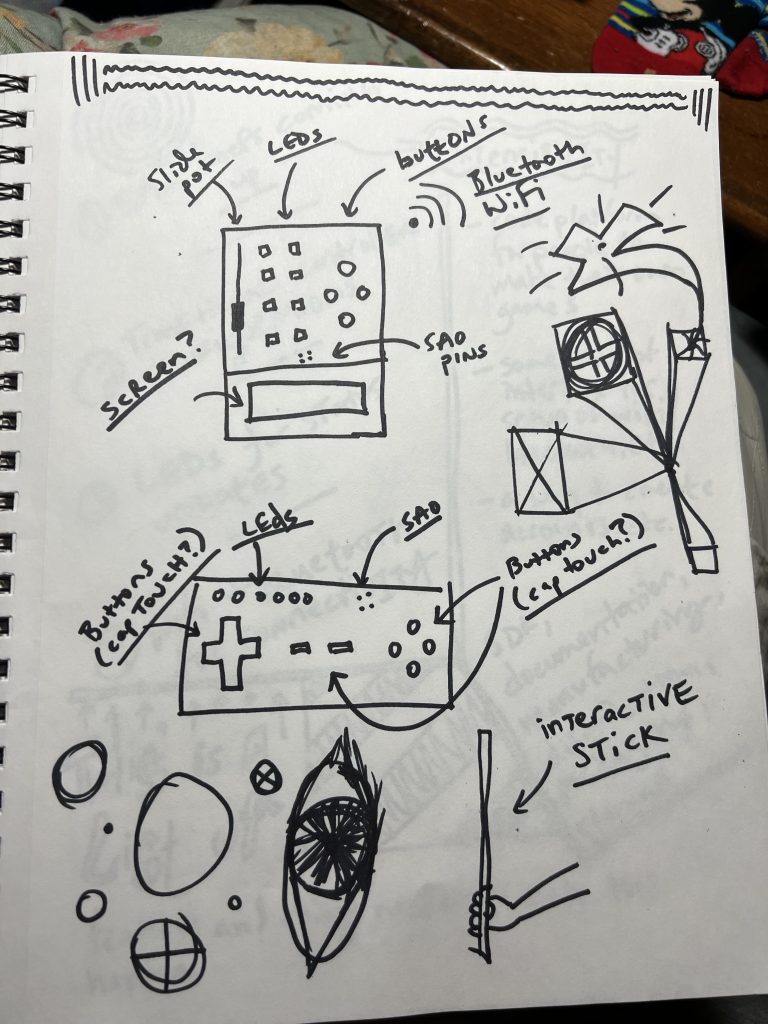 Slide
pot
LEDs
buttons
Bluetooth
WiFi
SAO
PINS
Screen?
LEDs
SAO
Buttons
(cap touch?)
Buttons
(cap touch?)
interactive
stick